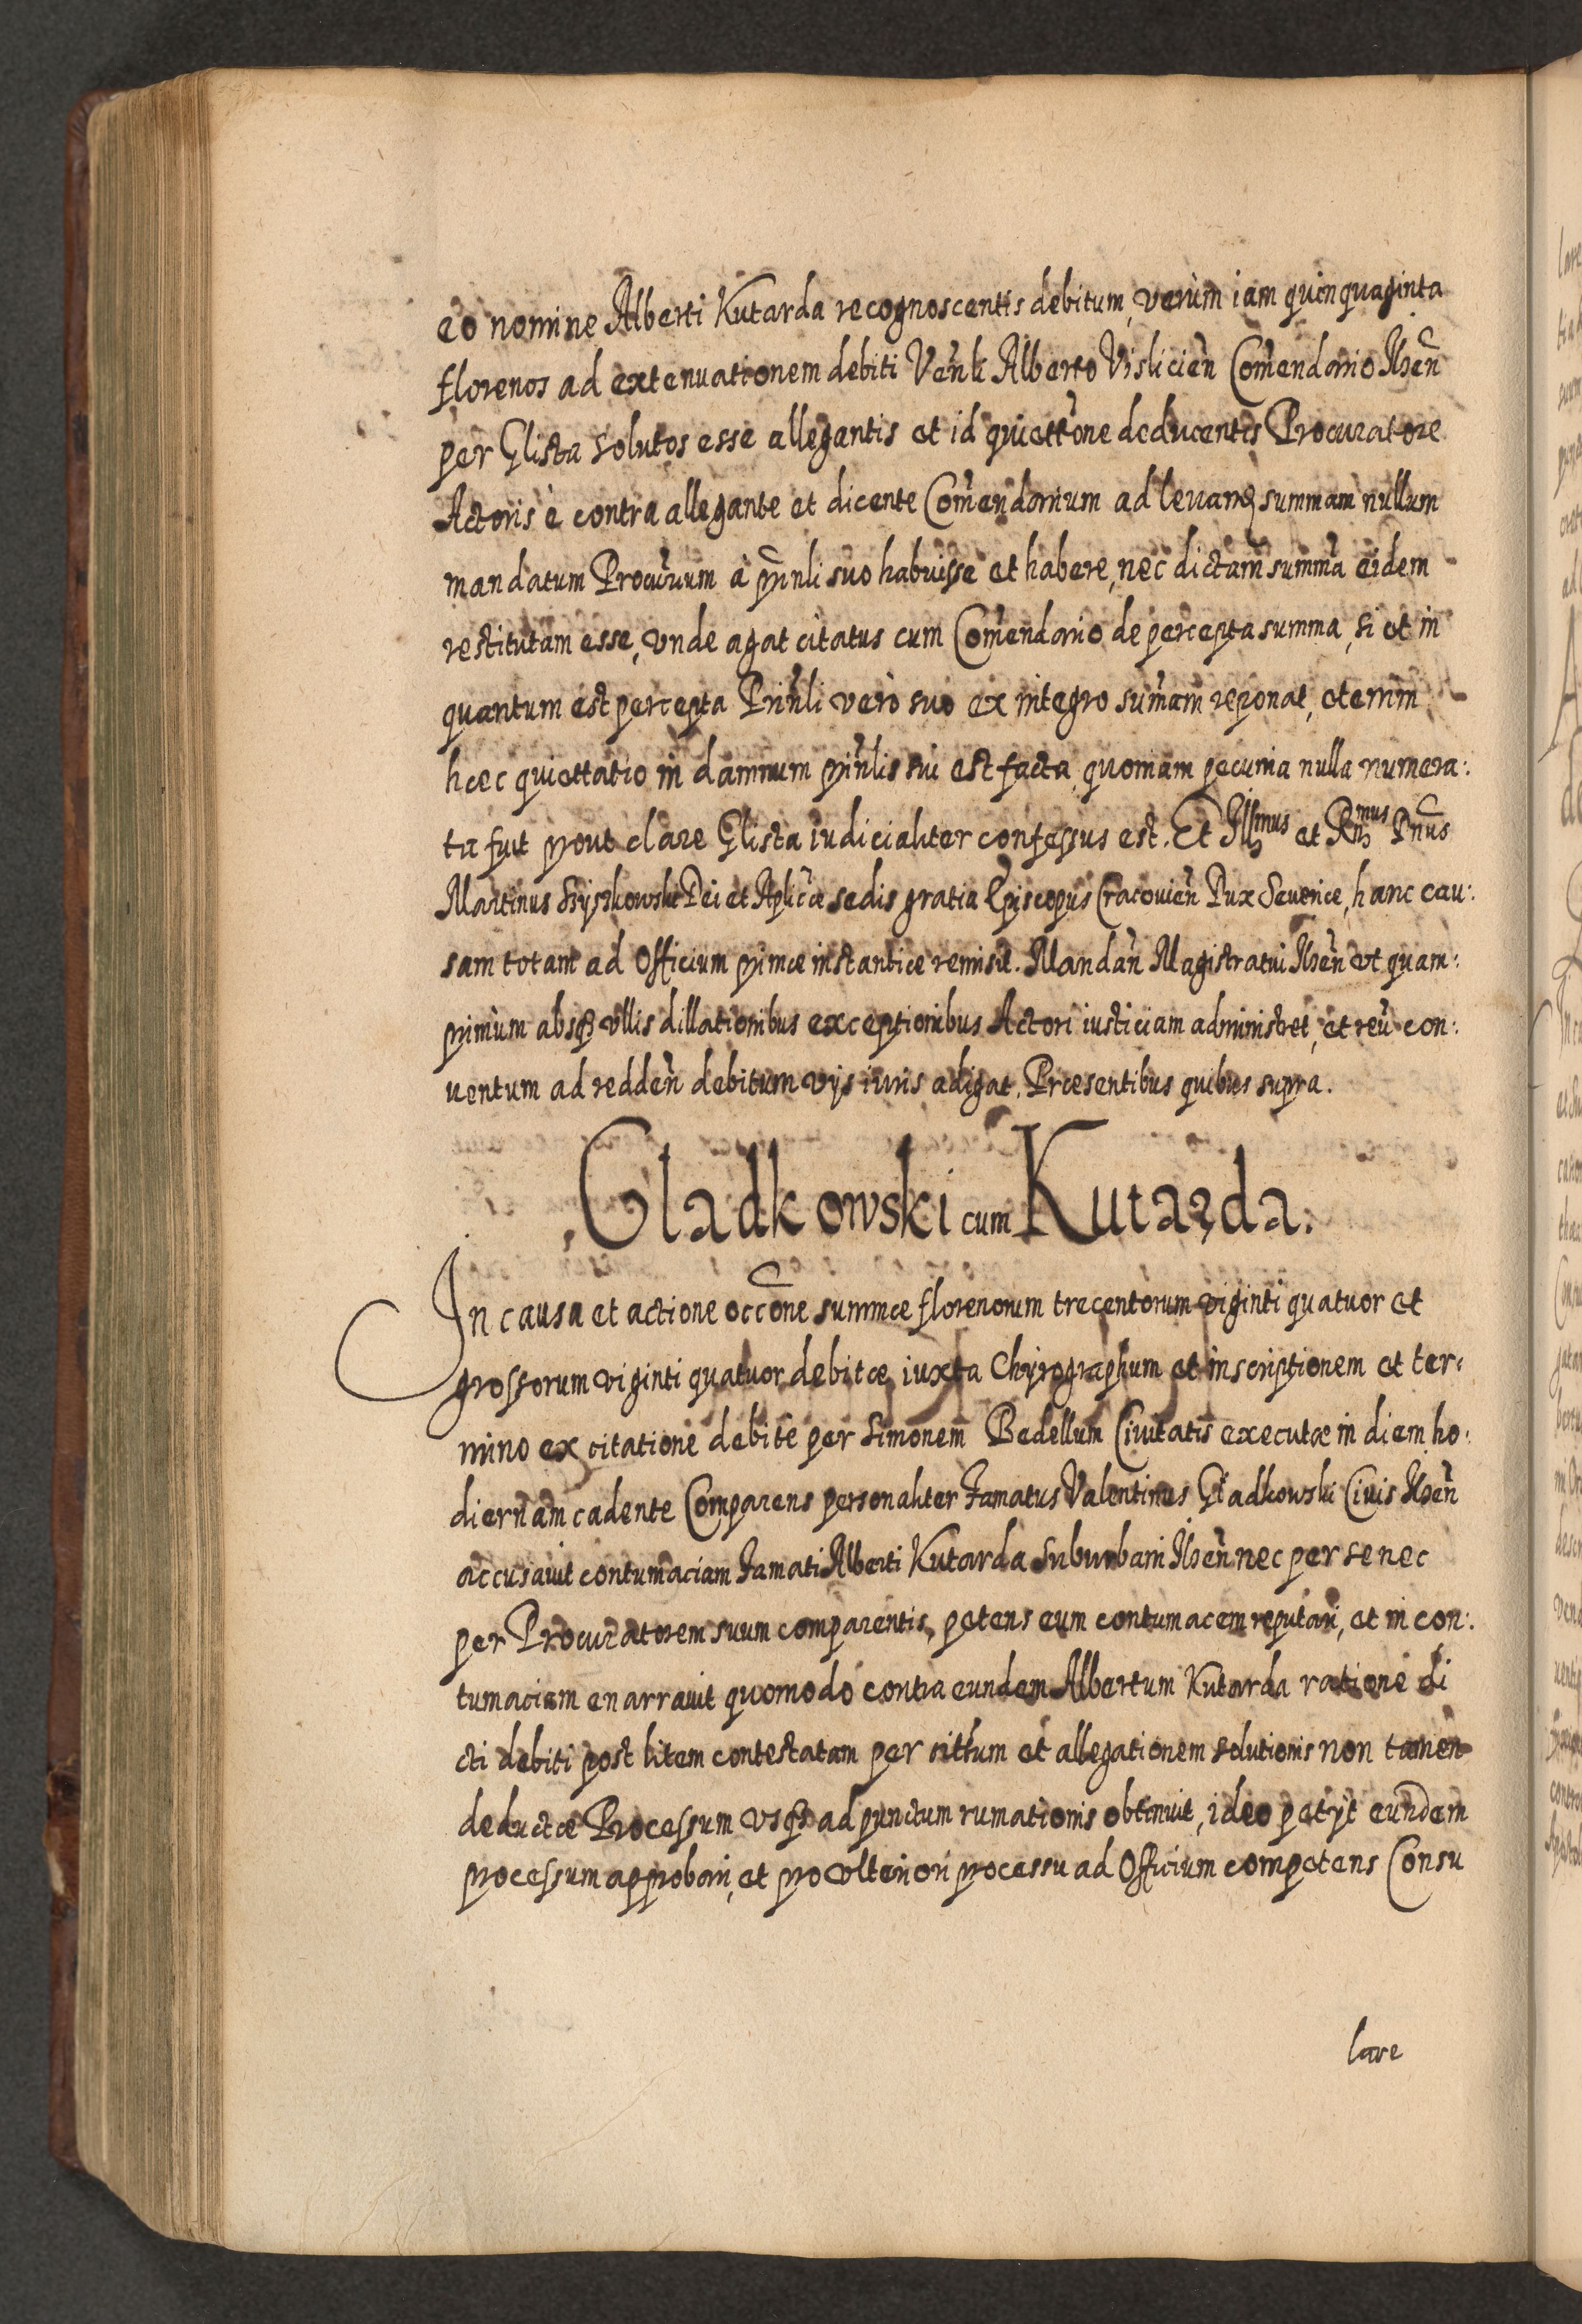 eo nomine Alberti Kutarda recognoscentis debitum, verùm iam quinquaginta
florenos ad extenuationem debiti Venli Alberto Visliciẽn Com̃endario Ilzẽn
per Glista solutos esse allegantis et id quiettõne deducentis Procuratore
Actoris è contra allegante et dicente Com̃endarium ad leuanḑ summam nullum
mandatum Procũium à prin̄li suo habuisse et habere, nec dictam sum̃ã eidem
restitutam esse, vnde agat citatus cum Com̃endario de percepta summa, si et in
quantum est percepta Prin̄li verò suo ex integro sum̃am reponat, etenim
hæc quiettatio in damnum prin̄lis sui est facta, quoniam pecunia nulla numera:
ta fuit prout clare Glista iudicialiter confessus est. Et Illmus et Rmus Dn̄us
Martinus Szyszkowski Dei et Aplicæ sedis gratia Episcopus Cracouiẽn Dux Seueriæ, hanc cau:
sam totam ad Officium primæ instantiæ remisit. Mandãn Magistratui Ilzẽn vt quam:
primum absq vllis dillationibus exceptionibus Actori iusticiam administret, et reũ con:
uentum ad reddẽn debitum vijs iuris adigat. Præsentibus quibus supra.
Gladkowski cum Kutarda.
In causa et actione occõne summæ florenorum trecentorum viginti quatuor et
grossorum viginti quatuor debitæ iuxta Chyrographum et inscriptionem et ter:
mino ex citatione debite per Simonem Bedellum Ciuitatis executæ in diem ho:
diernam cadente Comparens personaliter Famatus Valentinus Gładkowski Ciuis Ilzẽn
accusauit contumaciam Famati Alberti Kutarda Suburbani Ilzẽn nec per se nec
per Procuratorem suum comparentis, petens eum contumacem reputari, et in con:
tumaciam enarrauit quomodo contra eundem Albertum Kutarda ratione di
cti debiti post litem contestatam per et allegationem solutionis non tamen
deductæ Processum vsq ad punctum rumationis obtinuit, ideo petijt eundem
processum approbari, et pro vlteriori processu ad Officium competens Consu
lare